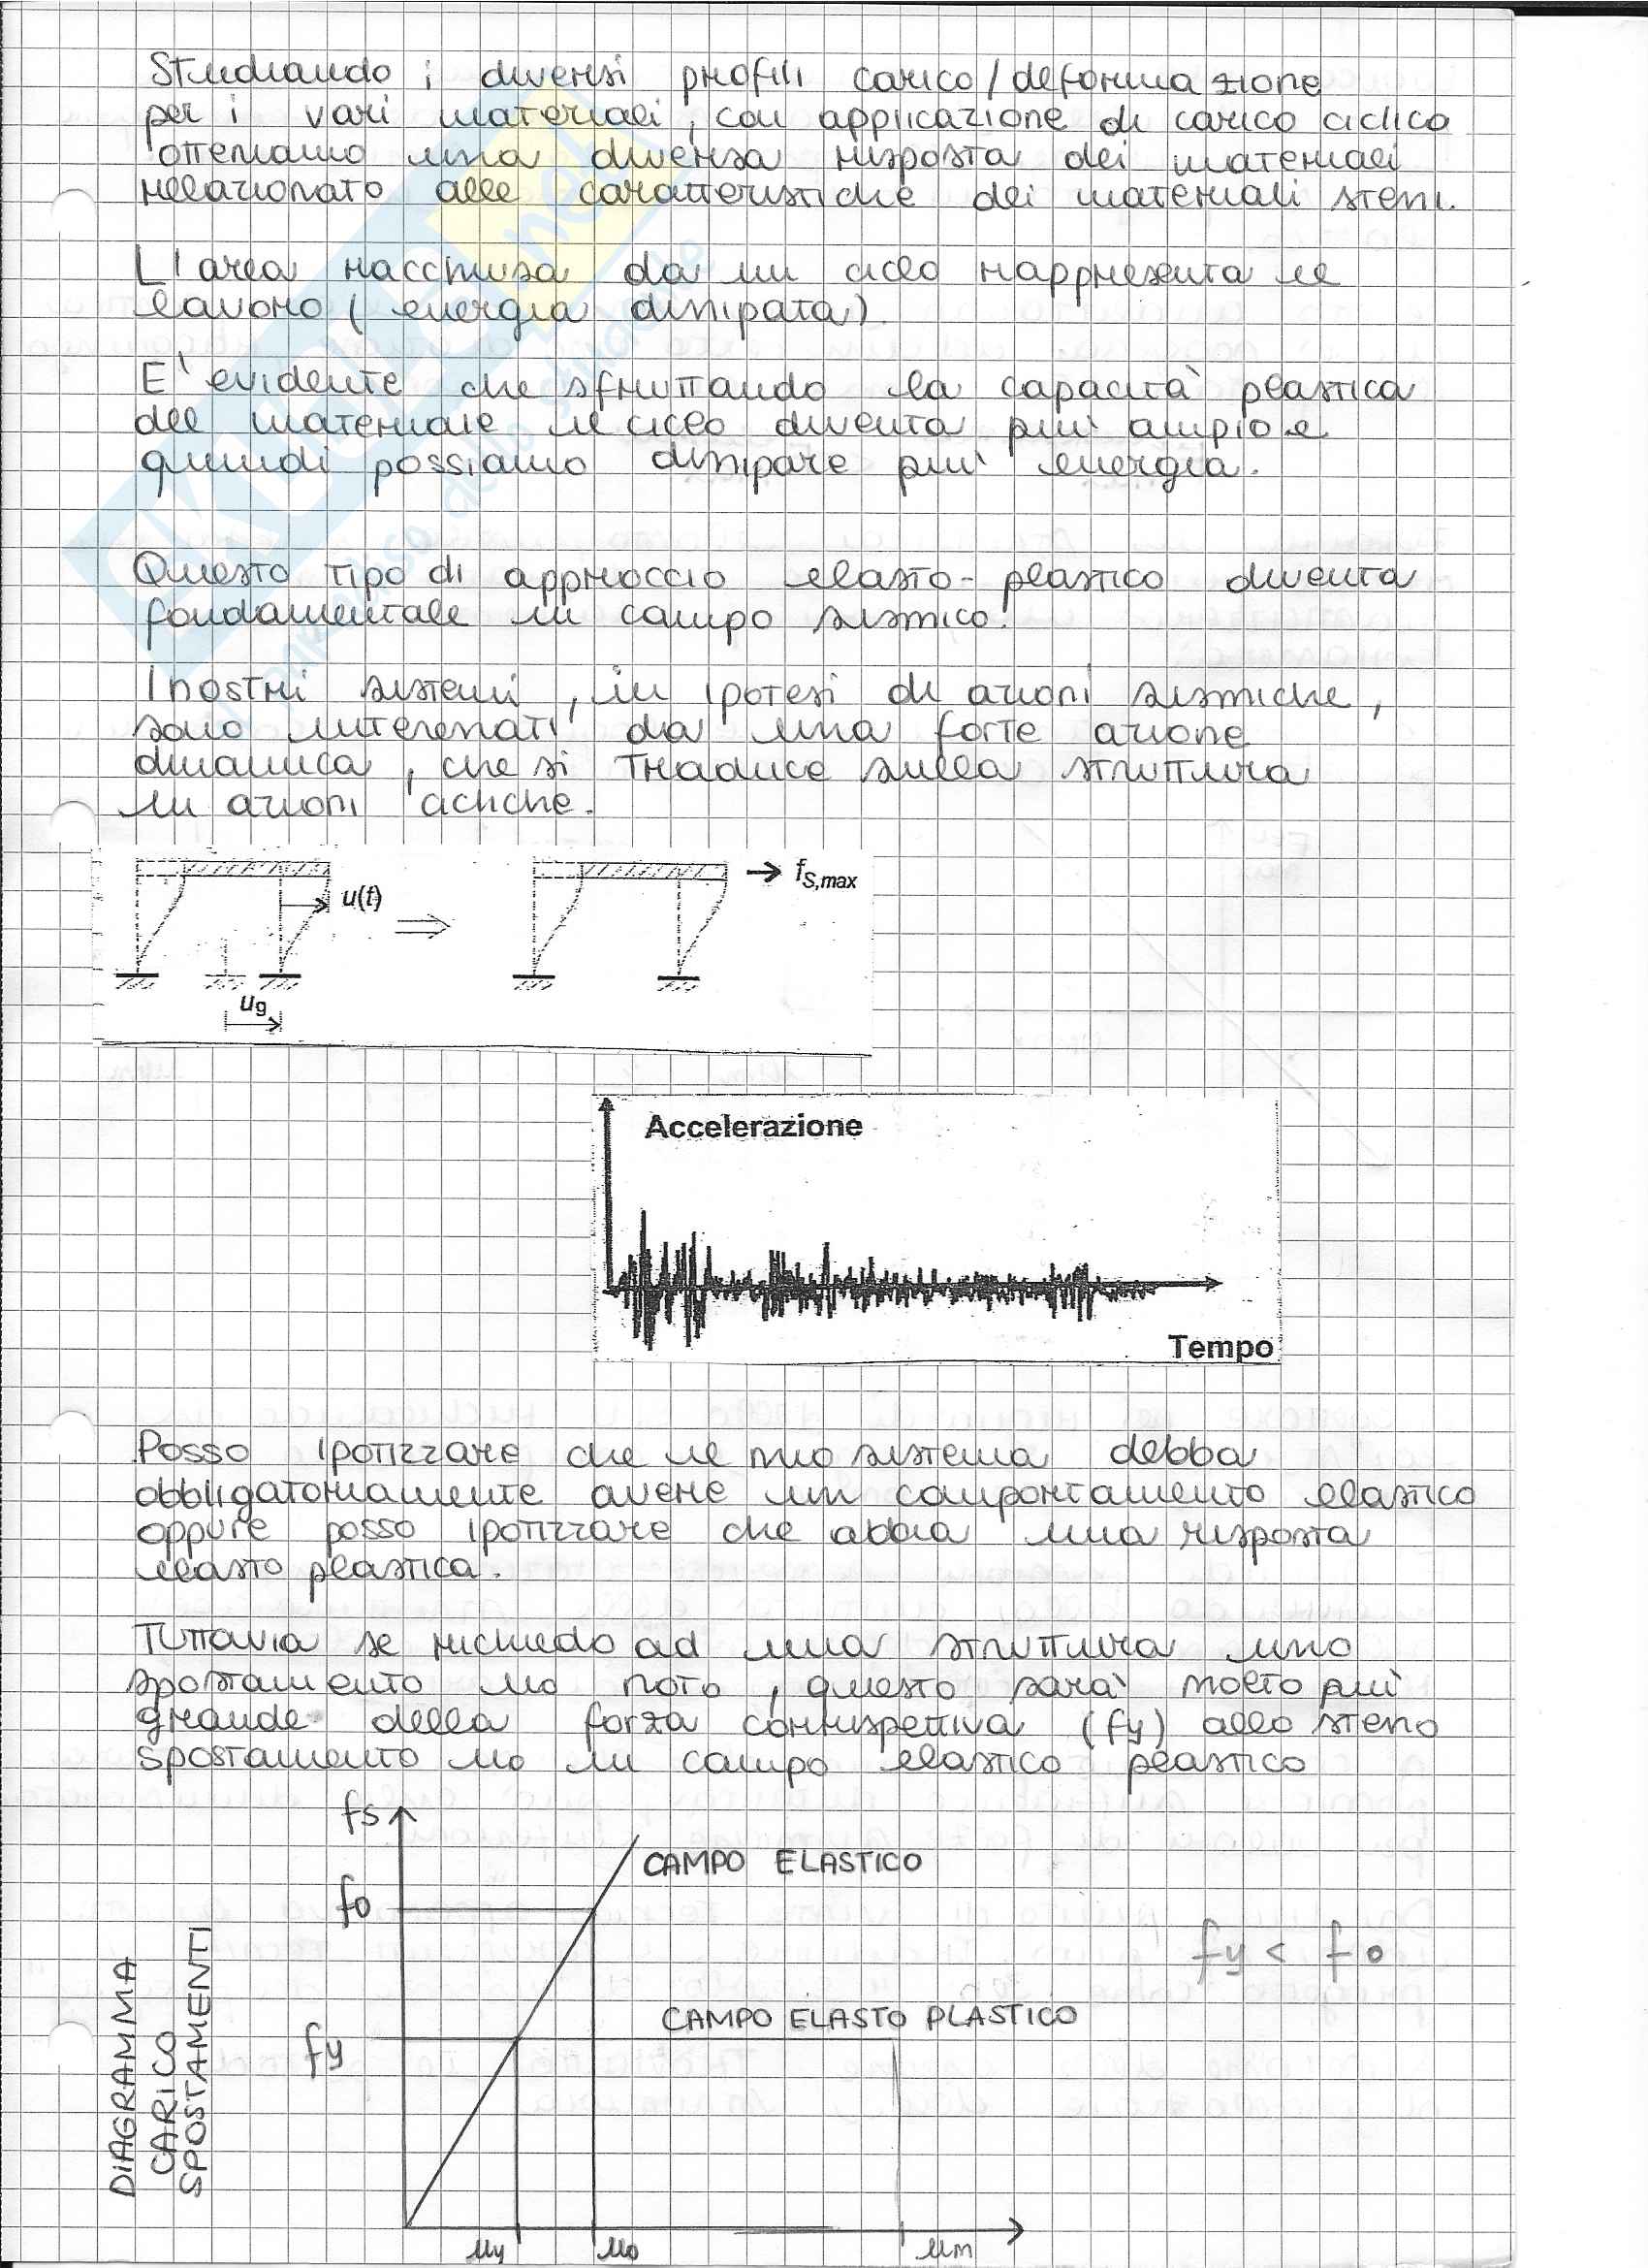 Studiando i diversi profili carico/deformazione
per i vari materiali, con applicazione di carico ciclico
otteniamo una diversa risposta dei materiali
relazionato alle caratteristiche dei materiali stessi.
L'area racchiusa da un ciclo rappresenta il
lavoro (energia dissipata)
E' evidente che sfruttando la capacità plastica
del materiale il ciclo diventa più ampio e
quindi possiamo dissipare più energia.
Questo tipo di approccio elasto-plastico diventa
fondamentale in campo sismico.
I nostri sistemi, in ipotesi di azioni sismiche,
sono interessati da una forte azione
dinamica, che si traduce sulla struttura
in azioni cicliche.
u(t)
fS,max
ug
Accelerazione
Tempo
Posso ipotizzare che il mio sistema debba
obbligatoriamente avere un comportamento elastico
oppure posso ipotizzare che abbia una risposta
elasto plastica.
Tuttavia se richiedo ad una struttura uno
spostamento u0 noto, questo sarà molto più
grande della forza corrispettiva (fy) allo stesso
spostamento u0 in campo elastico plastico
fs
CAMPO ELASTICO
f0
fy < f0
CAMPO ELASTO PLASTICO
fy
DIAGRAMMA
CARICO
SPOSTAMENTI
uy u0 um